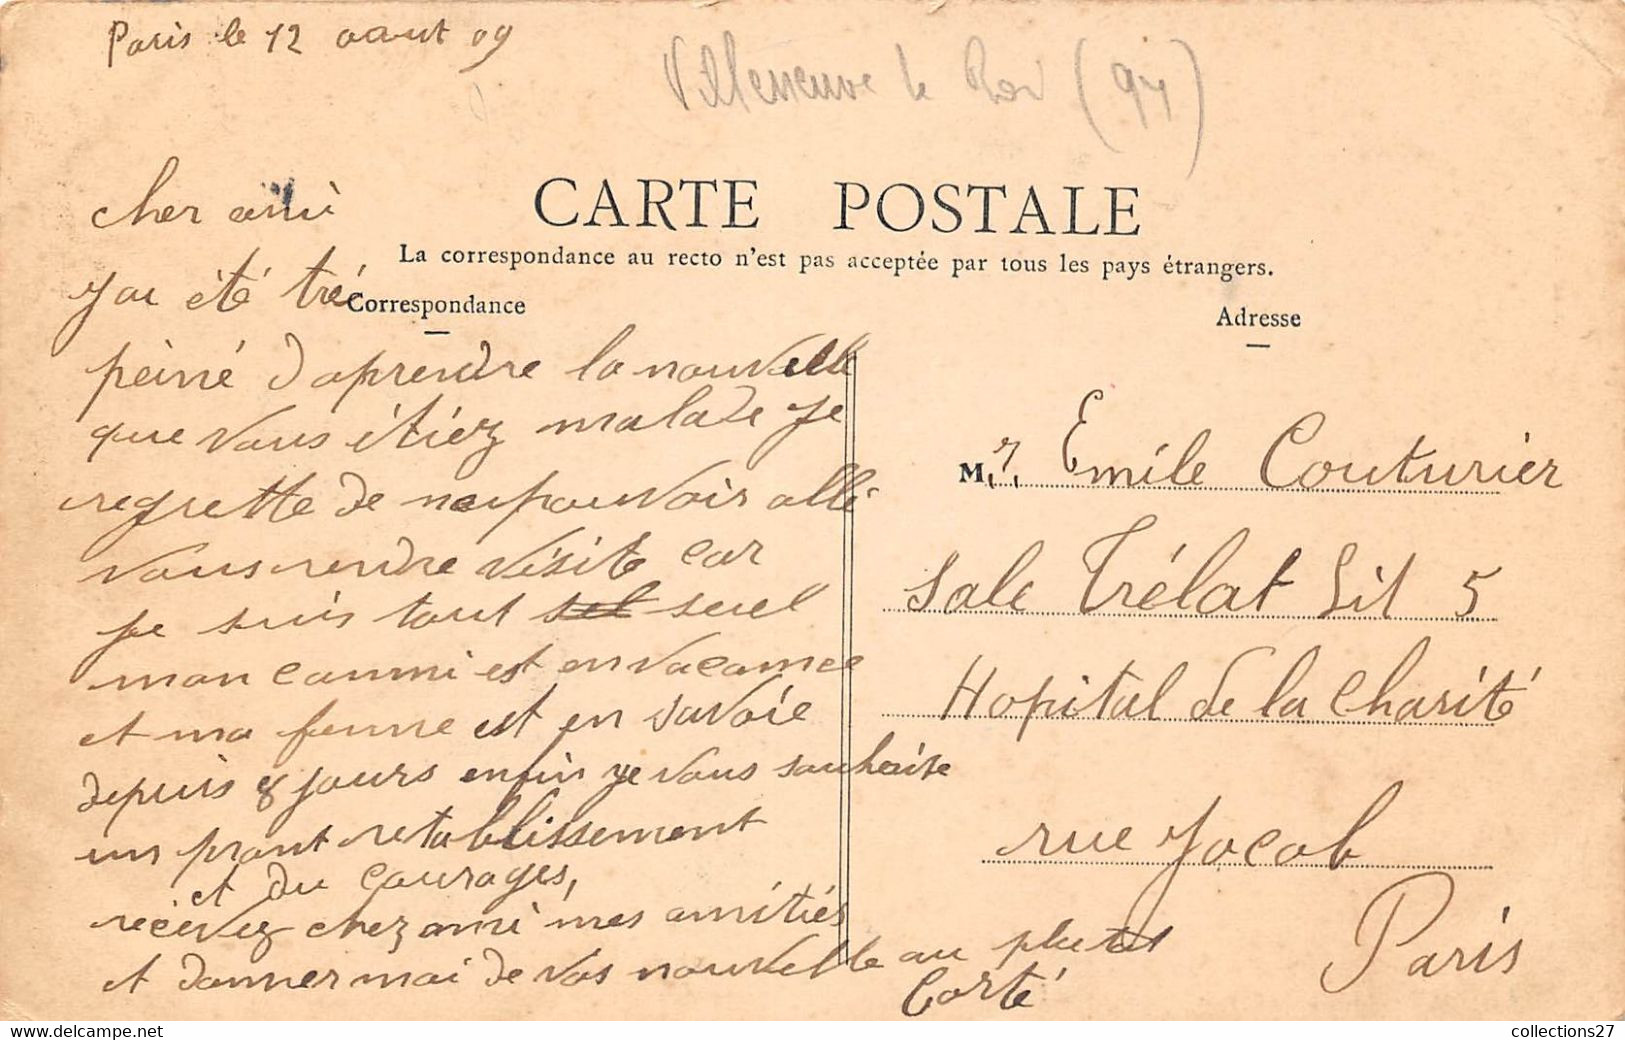 Paris le 12 aout 09
Villeneuve le Roi (94)
CARTE POSTALE
La correspondance au recto n'est pas acceptée par tous les pays étrangers.
Correspondance
Adresse
cher ami
j'ai été tré
peiné d'aprendre la nouvelle
que vous étiez malade je
regrette de ne pouvoir allé
vous rendre visite car
je suis tout sel seuel
mon commi est en vacance
et ma femme est en savoie
depuis 8 jours enfin je vous souhaite
un pront retablissement
et du courages,
récevez chez ami mes amitiés
et donner moi de vos nouvelle au plutot
Corté
M.r. Emile Couturier
Sale Trélat Lit 5
Hopital de la Charité
rue Jacob
Paris
collections27